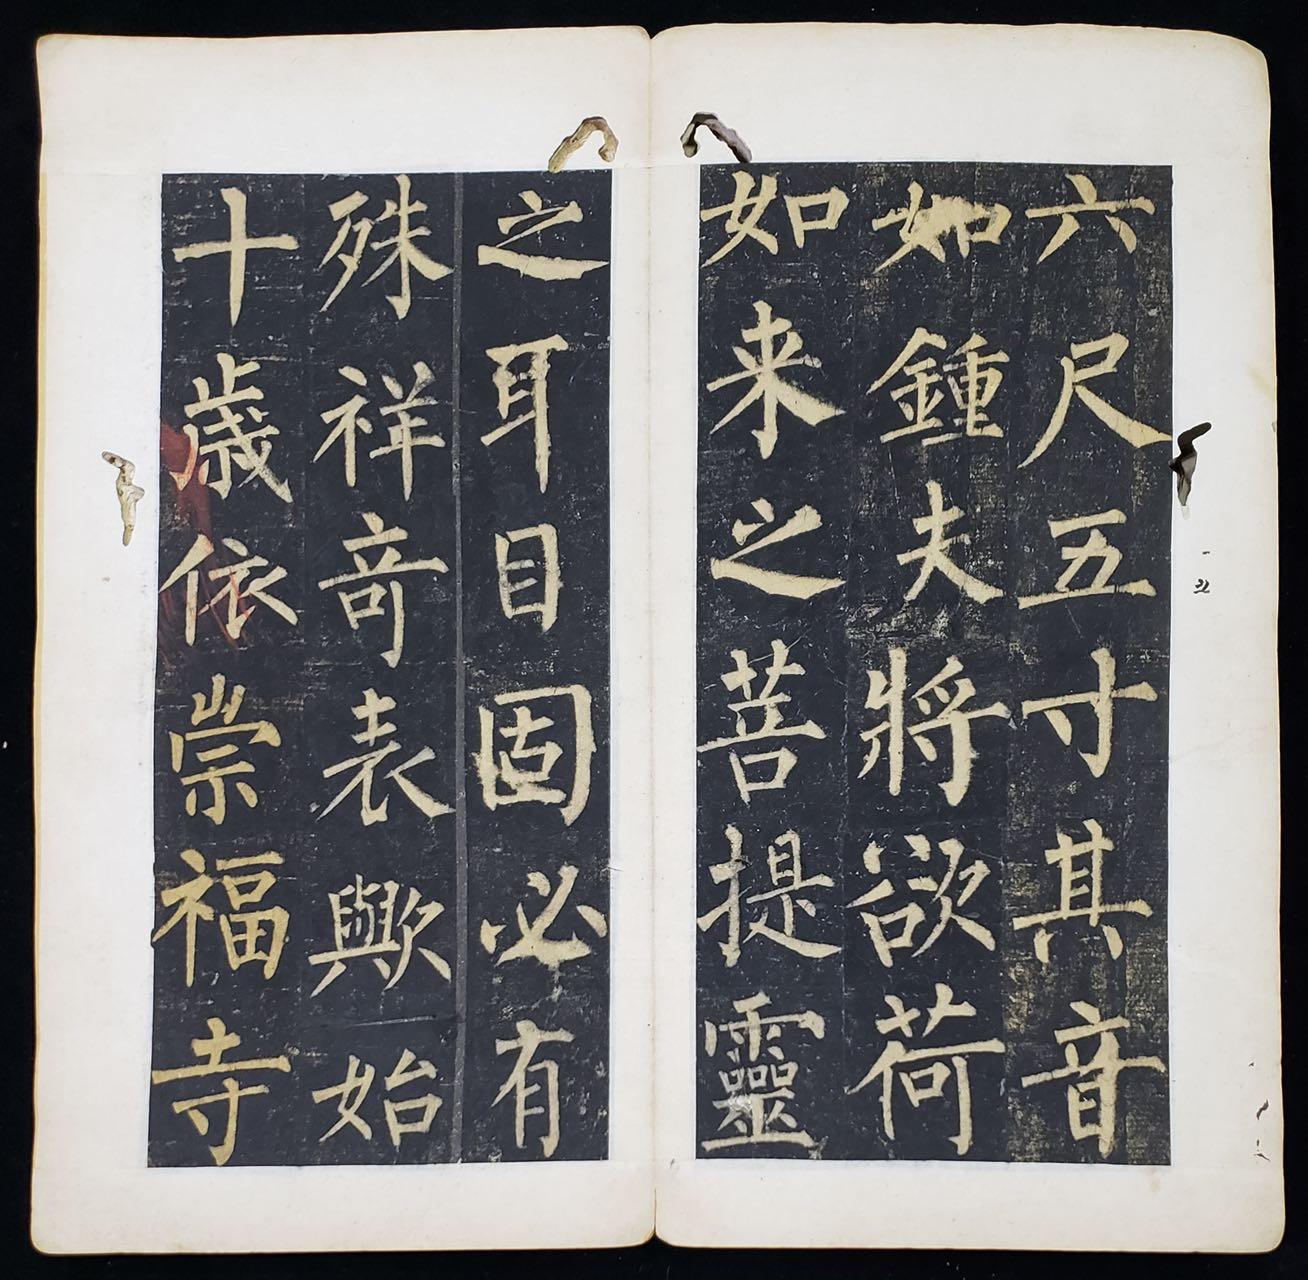 六尺五寸其音
如鍾夫將欲荷
如来之菩提靈
之耳目固必有
殊祥竒表歟始
十歲依崇福寺